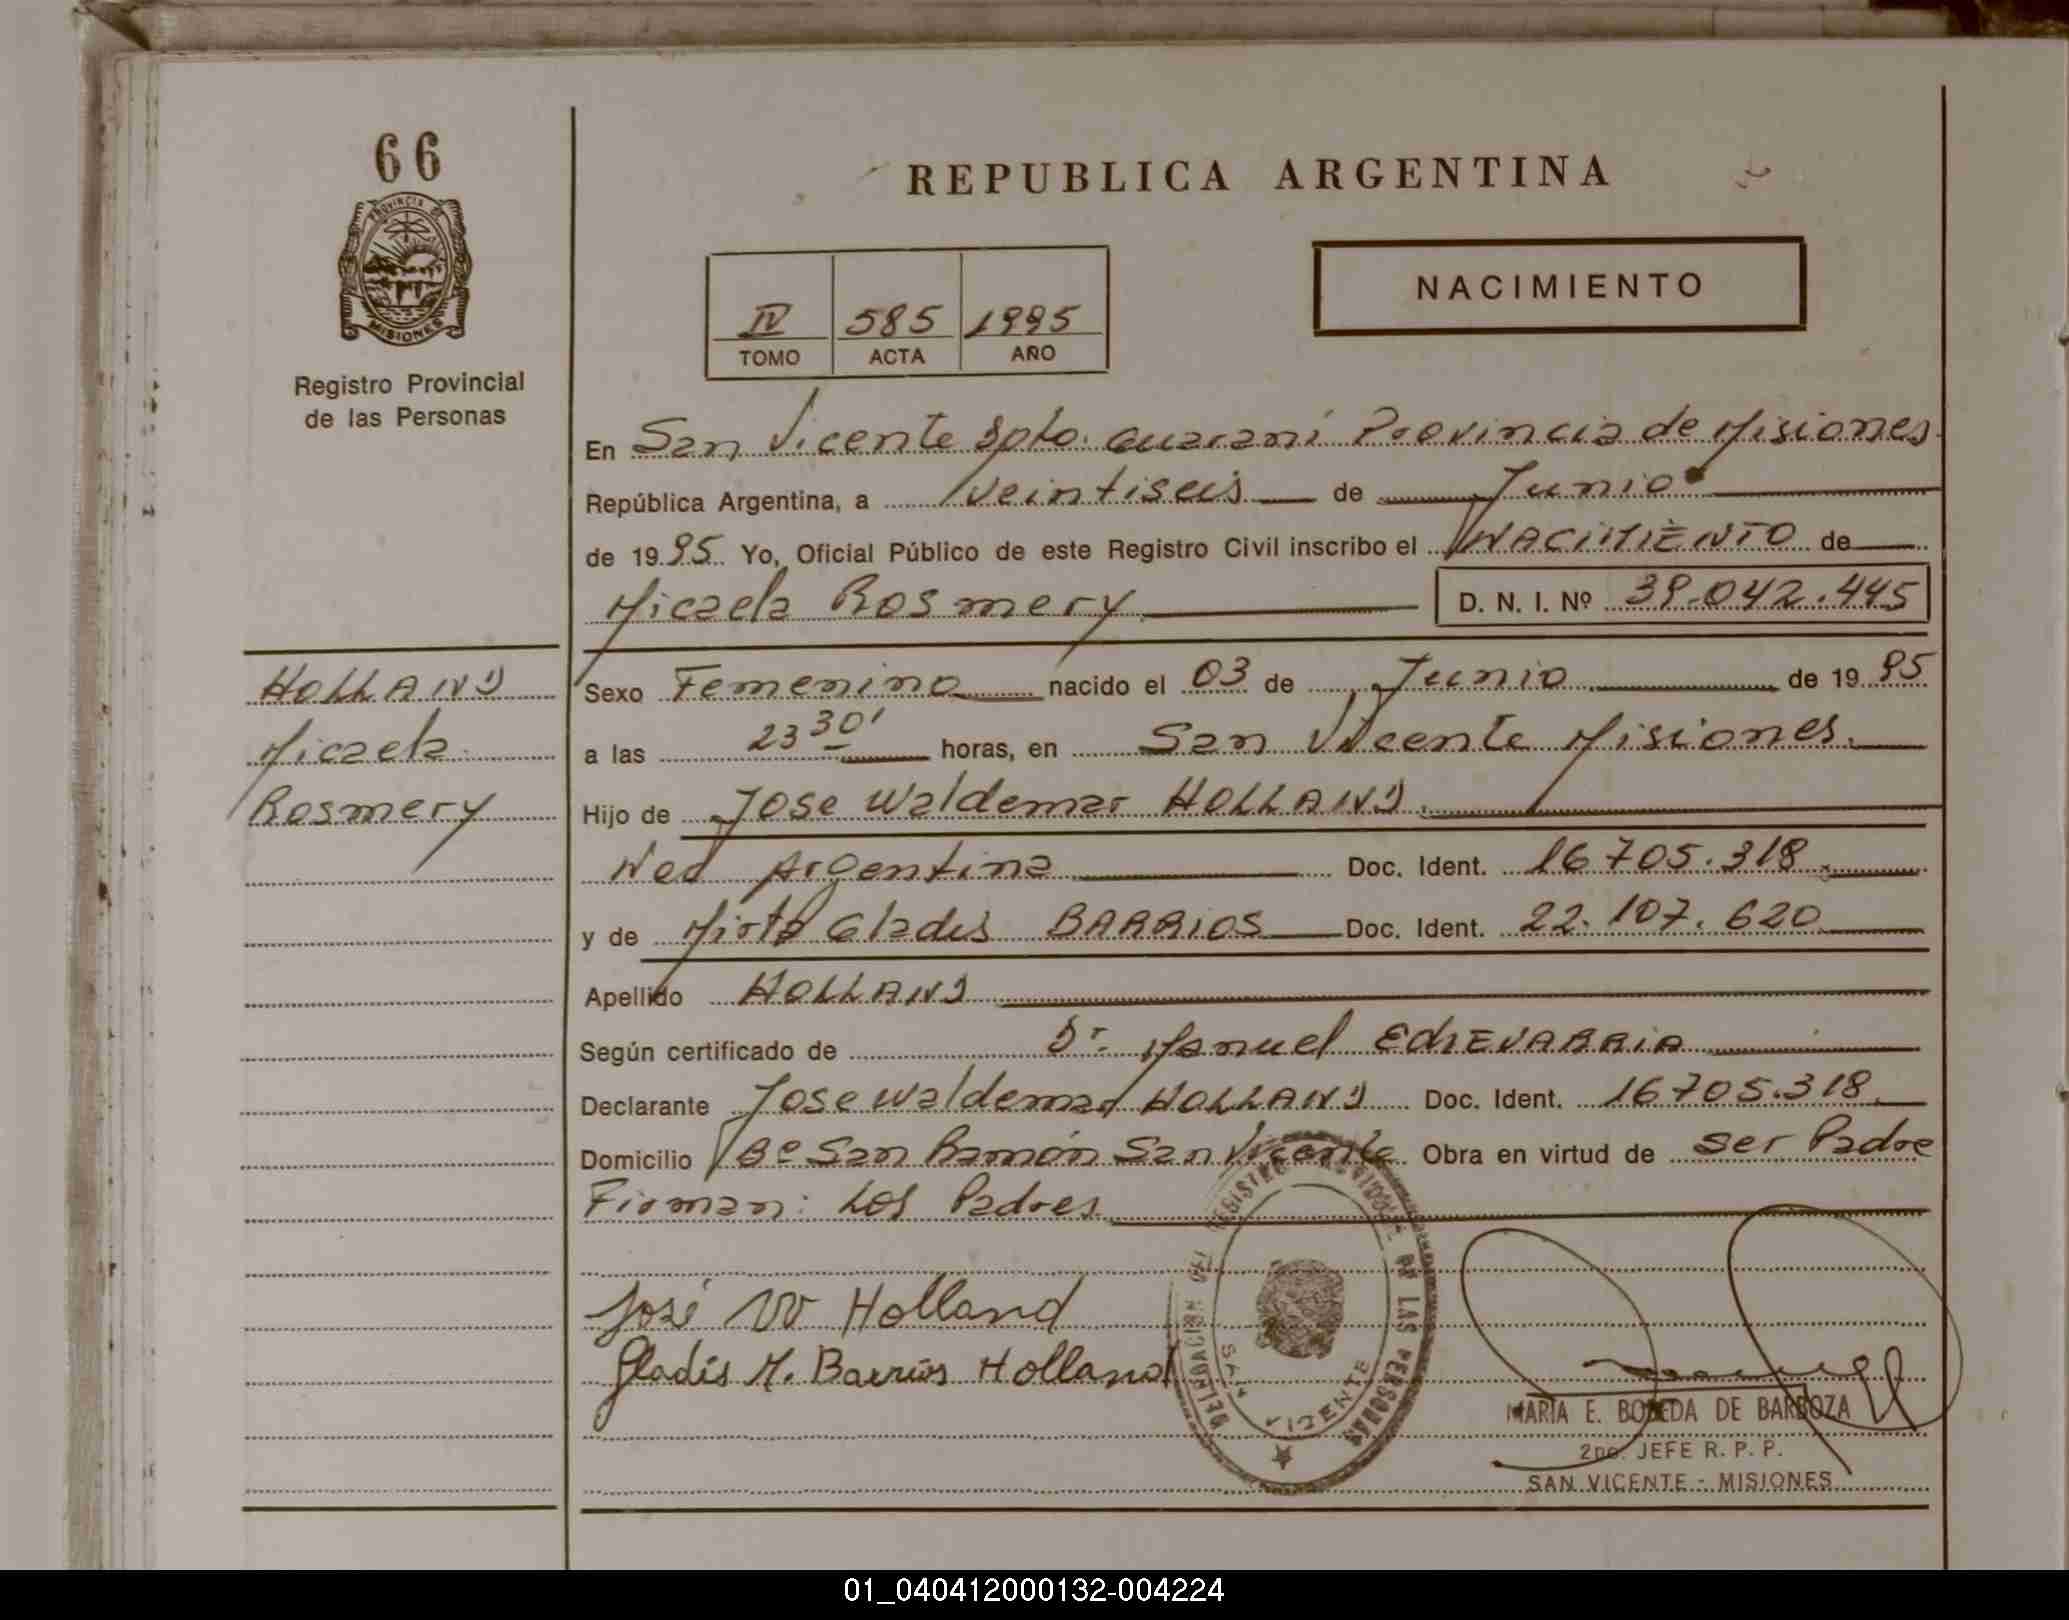 66
PROVINCIA DE
MISIONES
Registro Provincial
de las Personas
REPUBLICA ARGENTINA
NACIMIENTO
IV 585 1995
TOMO ACTA AÑO
En San Vicente Dpto. Guaraní Provincia de Misiones
República Argentina, a Veintiseis de Junio
de 1995 Yo, Oficial Público de este Registro Civil inscribo el NACIMIENTO de
Micaela Rosmery D. N. I. Nº 39.042.445
HOLLAND
Micaela
Rosmery
Sexo Femenino nacido el 03 de Junio de 1995
a las 23 30' horas, en San Vicente Misiones.
Hijo de Jose Waldemar HOLLAND
Nac Argentina Doc. Ident. 16 705.318
y de Mirta Gladis BARRIOS Doc. Ident. 22.107.620
Apellido HOLLAND
Según certificado de Dr. Manuel ECHEVARRIA
Declarante Jose Waldemar HOLLAND Doc. Ident. 16705.318
Domicilio Bº San Ramón San Vicente Obra en virtud de ser Padre
Firman: Los Padres
José W Holland
Gladis M. Barrios Holland
DELEGACION DEL REGISTRO DE LAS PERSONAS
SAN VICENTE
MARIA E. BOVEDA DE BARBOZA
2do. JEFE R. P. P.
SAN VICENTE - MISIONES
01_040412000132-004224